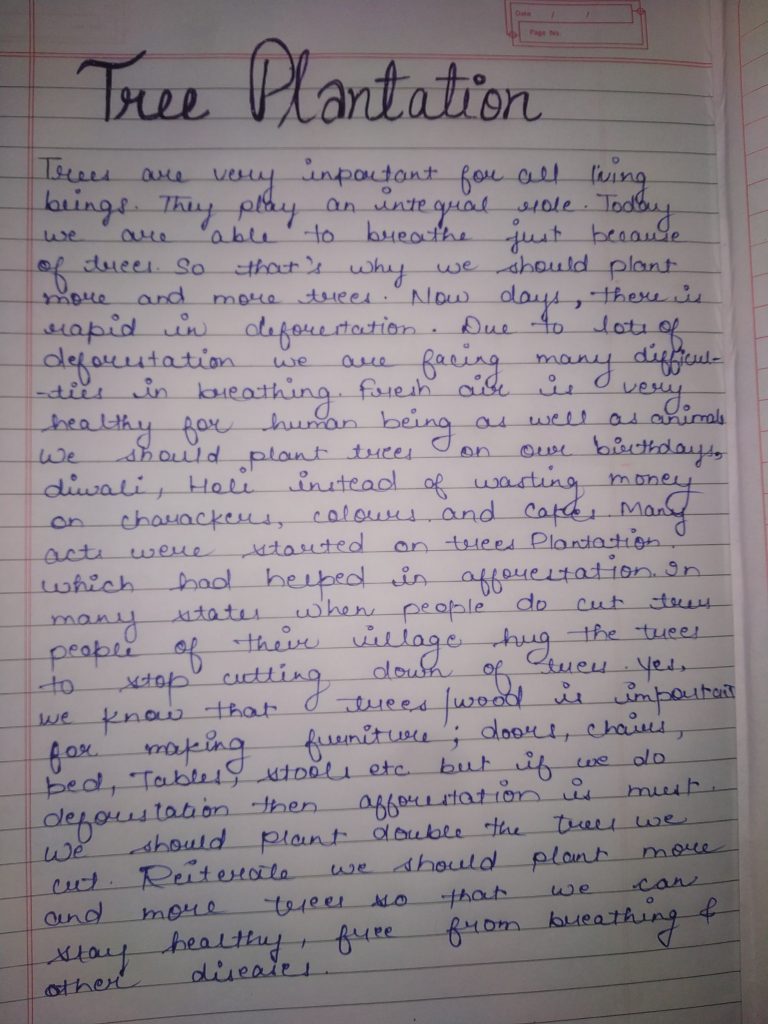 Date / /
Page No.
Tree Plantation
Trees are very inportant for all living
beings. They play an integral role. Today
we are able to breathe just because
of trees. So that's why we should plant
more and more trees. Now days, there is
rapid in deforestation. Due to lots of
deforestation we are facing many difficul-
-ties in breathing. Fresh air is very
healthy for human being as well as animals
We should plant trees on our birthdays,
diwali, Holi instead of wasting money
on charackers, colours and cakes. Many
acts were started on trees Plantation.
which had helped in afforestation. In
many states when people do cut trees
people of their village hug the trees
to stop cutting down of trees. Yes,
we know that trees/wood is important
for making furniture; doors, chairs,
bed, Tables, stools etc but if we do
deforestation then afforestation is must.
We should plant double the trees we
cut. Reiterate we should plant more
and more trees so that we can
stay healthy, free from breathing &
other diseases.